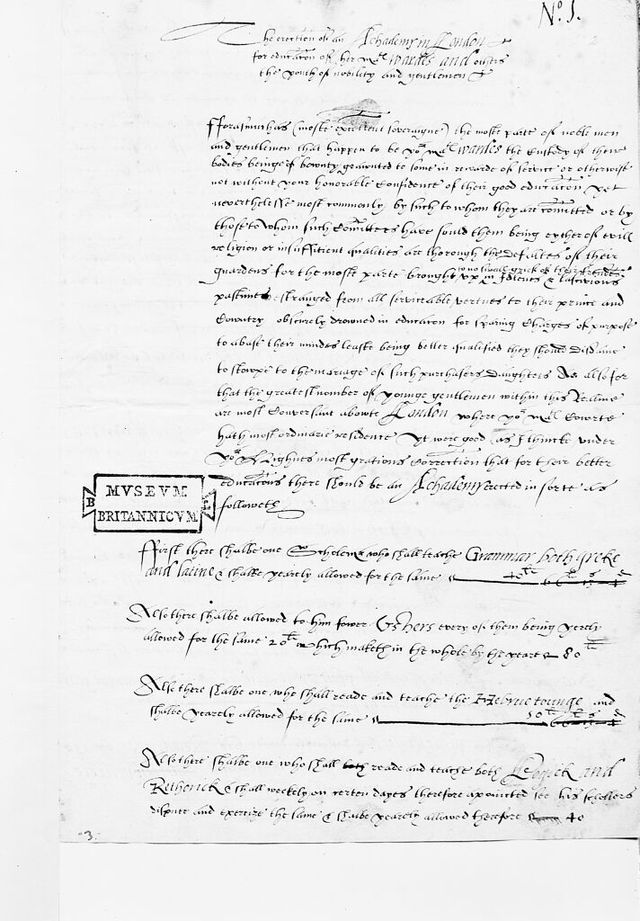 No. 1.
The erection of an Achademy in London
for educacion of her Maties Wardes and others
the youth of nobility and gentlemen
fforasmuchas (moste excellent soveraigne) the moste parte of noble men
and gentlemen that happen to be yor Maties wardes the custody of their
bodies beinge of bownty graunted to some in rewarde of service or otherwise
not without your honorable confidence of their good educacion yet
neverthelesse most commonly by such to whom they are comitted or by
those to whom such comittees have sould them being eyther of evill
religion or insufficient qualities are thorough the defaltes of their
guardens for the moste parte brought upp in Idlenes & lascivious
pastimes estranged from all serviceable vertues to their prince and
Cowntry obscurely drowned in educacion for sparing Charges of purpose
to abase their mindes leaste being better qualified they should disdaine
to stowpe to the mariage of such purchasers Daughters As also for
that the greatest number of younge gentlemen within this Realme
are most Conversant abowte London where yor Maties Cowrte
hath most ordinarie residence Yt were good as I thincke under
yor Highnes most gratious Correction that for their better
educacions there should be an Achademy erected in sorte as
followeth
MVSEVM
BRITANNICVM
ffirst there shalbe one Scholemr who shall teache Grammar both greke
and latine & shalbe yearely allowed for the same 40li
Also there shalbe allowed to him fower Vshers every of them being yerely
allowed for the same 20li which maketh in the whole by the yeare 80li
Also there shalbe one who shall reade and teache the Hebrue tounge and
shalbe yearely allowed for the same 50li
Also there shalbe one who shall reade and teache both Logick and
Rethorick & shall weekely on certen dayes therefore apointed see his schollers
dispute and exercize the same & shalbe yearely allowed therefore 40
3.